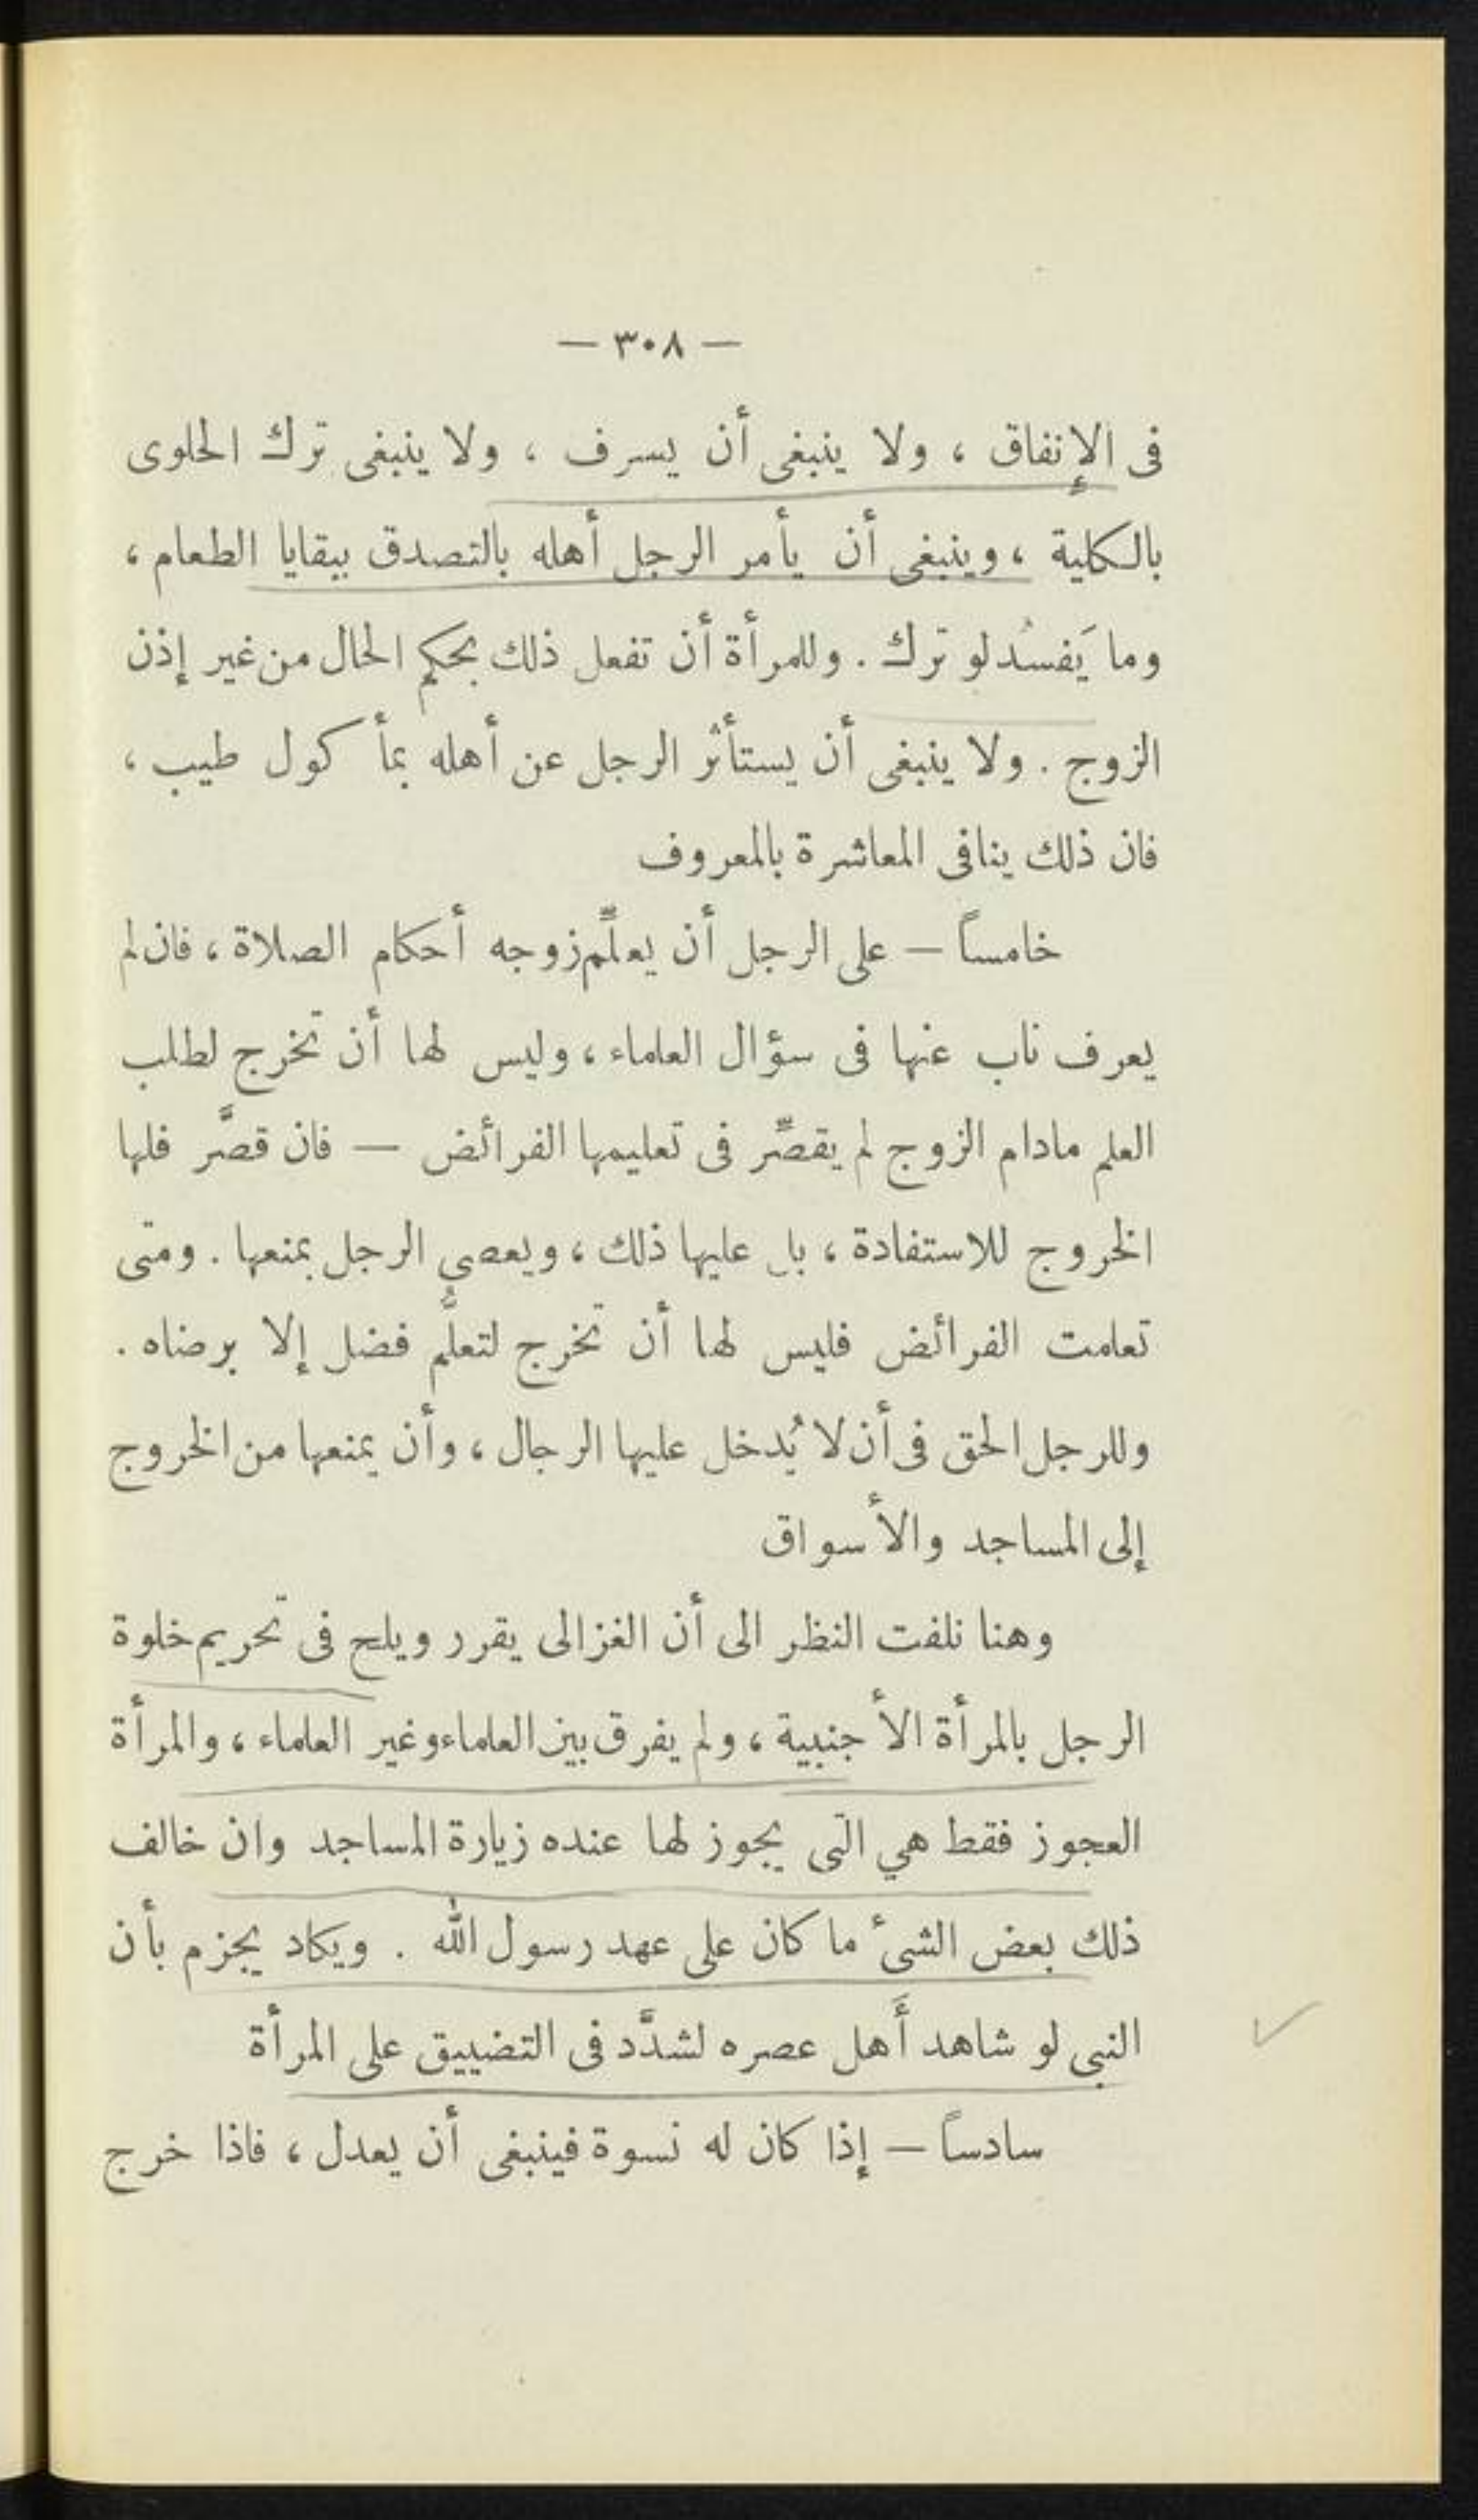 — ٣٠٨ —
فى الإنفاق ، ولا ينبغى أن يسرف ، ولا ينبغى ترك الحلوى
بالكلية ، وينبغى أن يأمر الرجل أهله بالتصدق ببقايا الطعام ،
وما يَفسُد لو ترك . وللمرأة أن تفعل ذلك بحكم الحال من غير إذن
الزوج . ولا ينبغى أن يستأثر الرجل عن أهله بمأكول طيب ،
فان ذلك ينافى المعاشرة بالمعروف
خامساً — على الرجل أن يعلِّم زوجه أحكام الصلاة ، فان لم
يعرف ناب عنها فى سؤال العلماء ، وليس لها أن تخرج لطلب
العلم مادام الزوج لم يقصِّر فى تعليمها الفرائض — فان قصَّر فلها
الخروج للاستفادة ، بل عليها ذلك ، ويعصى الرجل بمنعها . ومتى
تعلمت الفرائض فليس لها أن تخرج لتعلُّم فضل إلا برضاه .
وللرجل الحق فى أن لا يُدخل عليها الرجال ، وأن يمنعها من الخروج
إلى المساجد والأسواق
وهنا نلفت النظر الى أن الغزالى يقرر ويلح فى تحريم خلوة
الرجل بالمرأة الأجنبية ، ولم يفرق بين العلماء وغير العلماء ، والمرأة
العجوز فقط هي التى يجوز لها عنده زيارة المساجد وان خالف
ذلك بعض الشىء ما كان على عهد رسول الله . ويكاد يجزم بأن
النبى لو شاهد أَهل عصره لشدَّد فى التضييق على المرأة
سادساً — إذا كان له نسوة فينبغى أن يعدل ، فاذا خرج